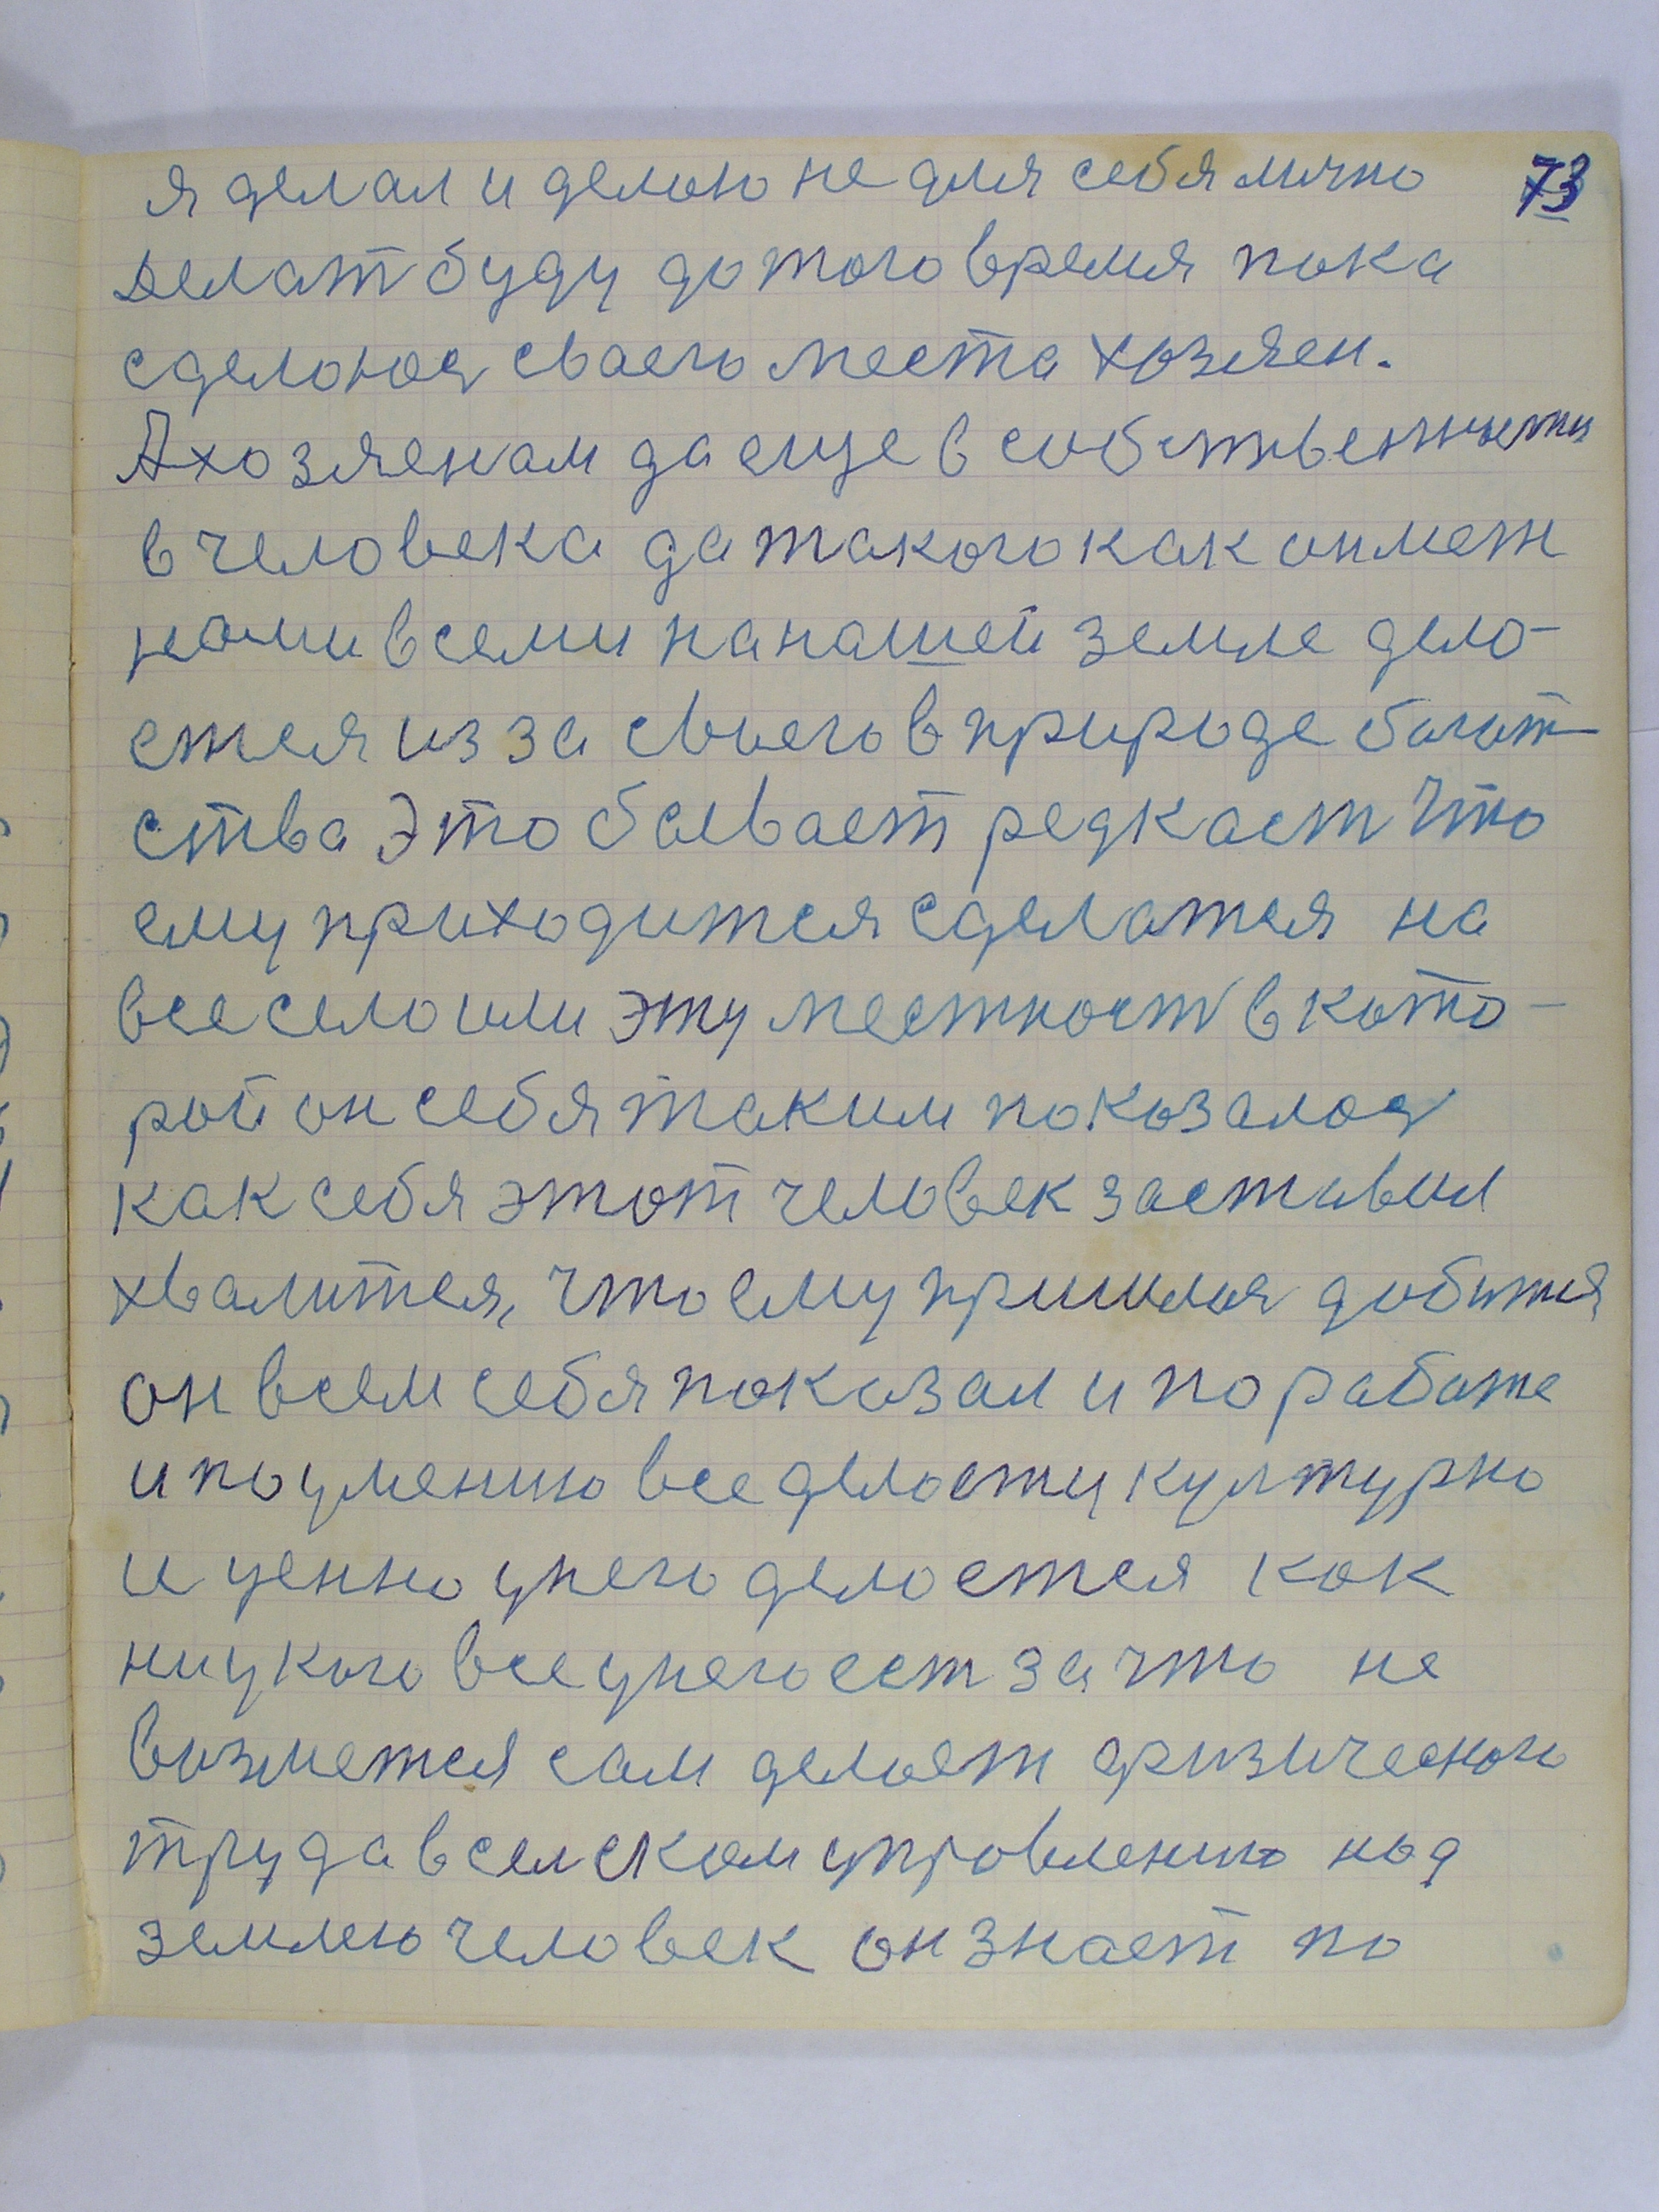 я делал и делаю не для себя лично 73
делат буду до того время пока
сделоюся сваего места хозяен.
А хозяенам да еще в собственности
в человека да такого как он меж
нами всеми на нашей земле дело-
ется из за своего в природе богат-
ства Это бывает редкаст Что
ему приходится сделатся на
все село или эту местност в кото-
рой он себя таким показался
как себя этот человек заставил
хвалится, что ему пришлося добится
он всем себя показал и по работе
и по умению все делоется културно
и ценно у него делоется как
ни у кого все у него ест за что не
возмется сам делоет физического
труда в селском управлению над
землею человек он знает по